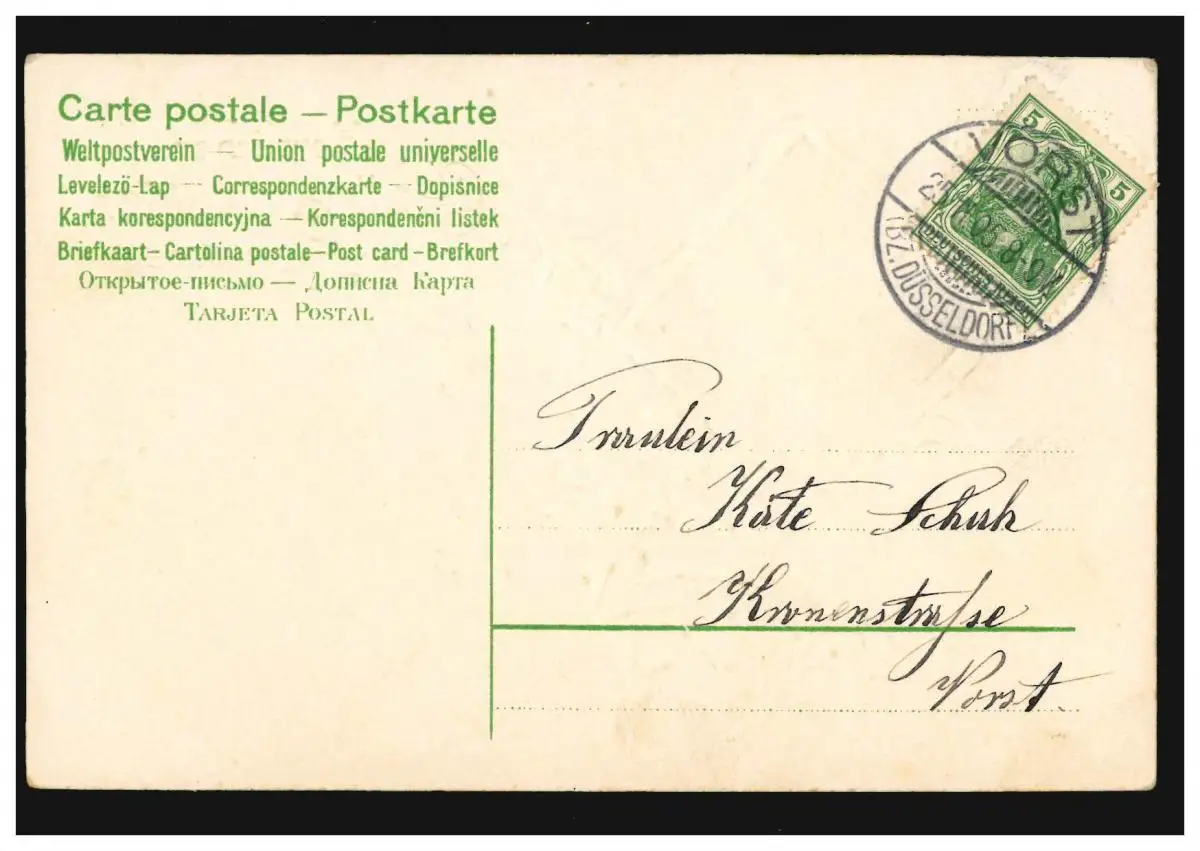 Carte postale — Postkarte
Weltpostverein — Union postale universelle
Levelezö-Lap — Correspondenzkarte — Dopisnice
Karta korespondencyjna — Korespondenčni listek
Briefkaart — Cartolina postale — Post card — Brefkort
Открытое-письмо — Дописна Карта
TARJETA POSTAL
5 5
VORST
05.8-9
(BZ. DÜSSELDORF)
Fräulein
Käte Schuh
Kronenstraſse
Vorst.